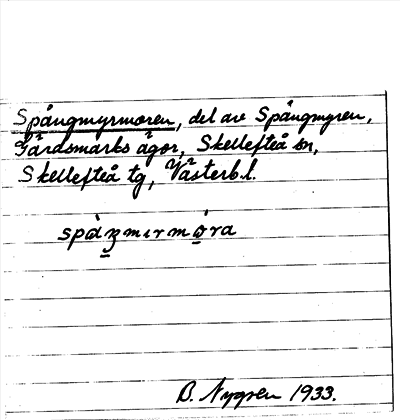 Spångmyrmoren, del av Spångmyren,
Gärdsmarks ägor, Skellefteå sn,
Skellefteå tg, Västerb.l.
B. Nygren 1933.